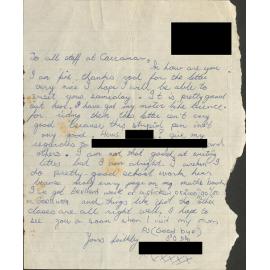 To all staff at Carramar.
So how are you
I am fine thanks god for the letter
very nice I hope I will be able to
meet you someday. It is pretty good
out here, I have got my motor bike licence
for riding them this letter isn't very
good because this stupid pen isn't
very good. Hows give my
regards to and
others. I am not that good at writing
letters but I am alright. I
do pretty good school work here
because nearly every page on my maths book
I've got excellent work
Excellent and things like that do other
classes are all right well, I hope to
see you soon when I visit my mum
Yours faithfully
XXXXX